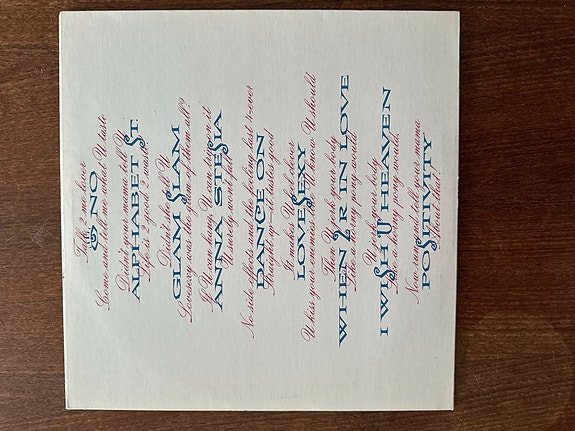 Talk 2 me lover
NO
Come and tell me what U taste
Didn't your mama tell U
ALPHABET ST.
Life is 2 good 2 waste
Didn't she tell U
GLAM SLAM
Lovesexy was the glam of them all?
If U can hang U can trip on it
ANNA STESIA
U surely won't fall
No side effects and the feeling last 4-ever
DANCE ON
Straight up—it tastes good
It makes U feel clever
LOVESEXY
U kiss your enemies like U know U should
Then U jerk your body
WHEN 2 R IN LOVE
Like a horny pony would
U jerk your body
I WISH U HEAVEN
Like a horny pony would.
Now run and tell your mama
POSITIVITY
About that!